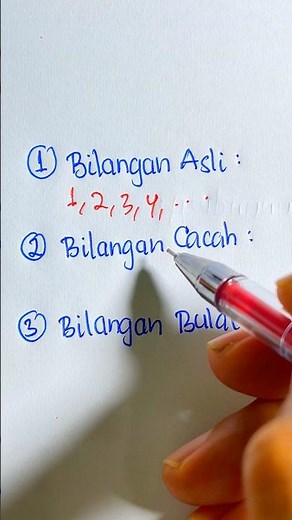 ① Bilangan Asli :
1, 2, 3, 4, ...
② Bilangan Cacah :
③ Bilangan Bulat